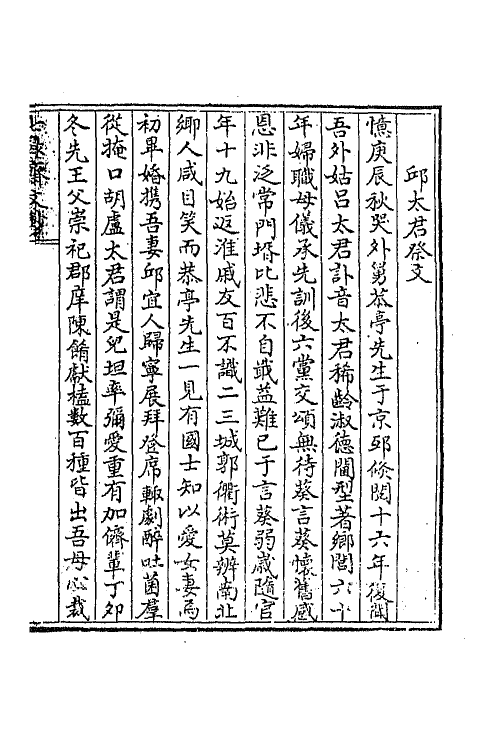 邱太君祭文
憶庚辰秋哭外舅恭亭先生于京邸倏閱十六年復聞
吾外姑呂太君訃音太君稀齡淑德閫型著鄉閭六十
年婦職母儀承先訓後六黨交頌無待葵言葵懷舊感
恩非泛常門壻比悲不自戢益難已于言葵弱歲隨官
年十九始返淮戚友百不識二三城郭衢術莫辨南北
鄉人咸目笑而恭亭先生一見有國士知以愛女妻焉
初畢婚携吾妻邱宜人歸寧展拜登席輙劇醉吐茵羣
從掩口胡盧太君謂是兒坦率彌愛重有加儕輩丁卯
冬先王父崇祀郡庠陳餚獻榼數百種皆出吾母心裁